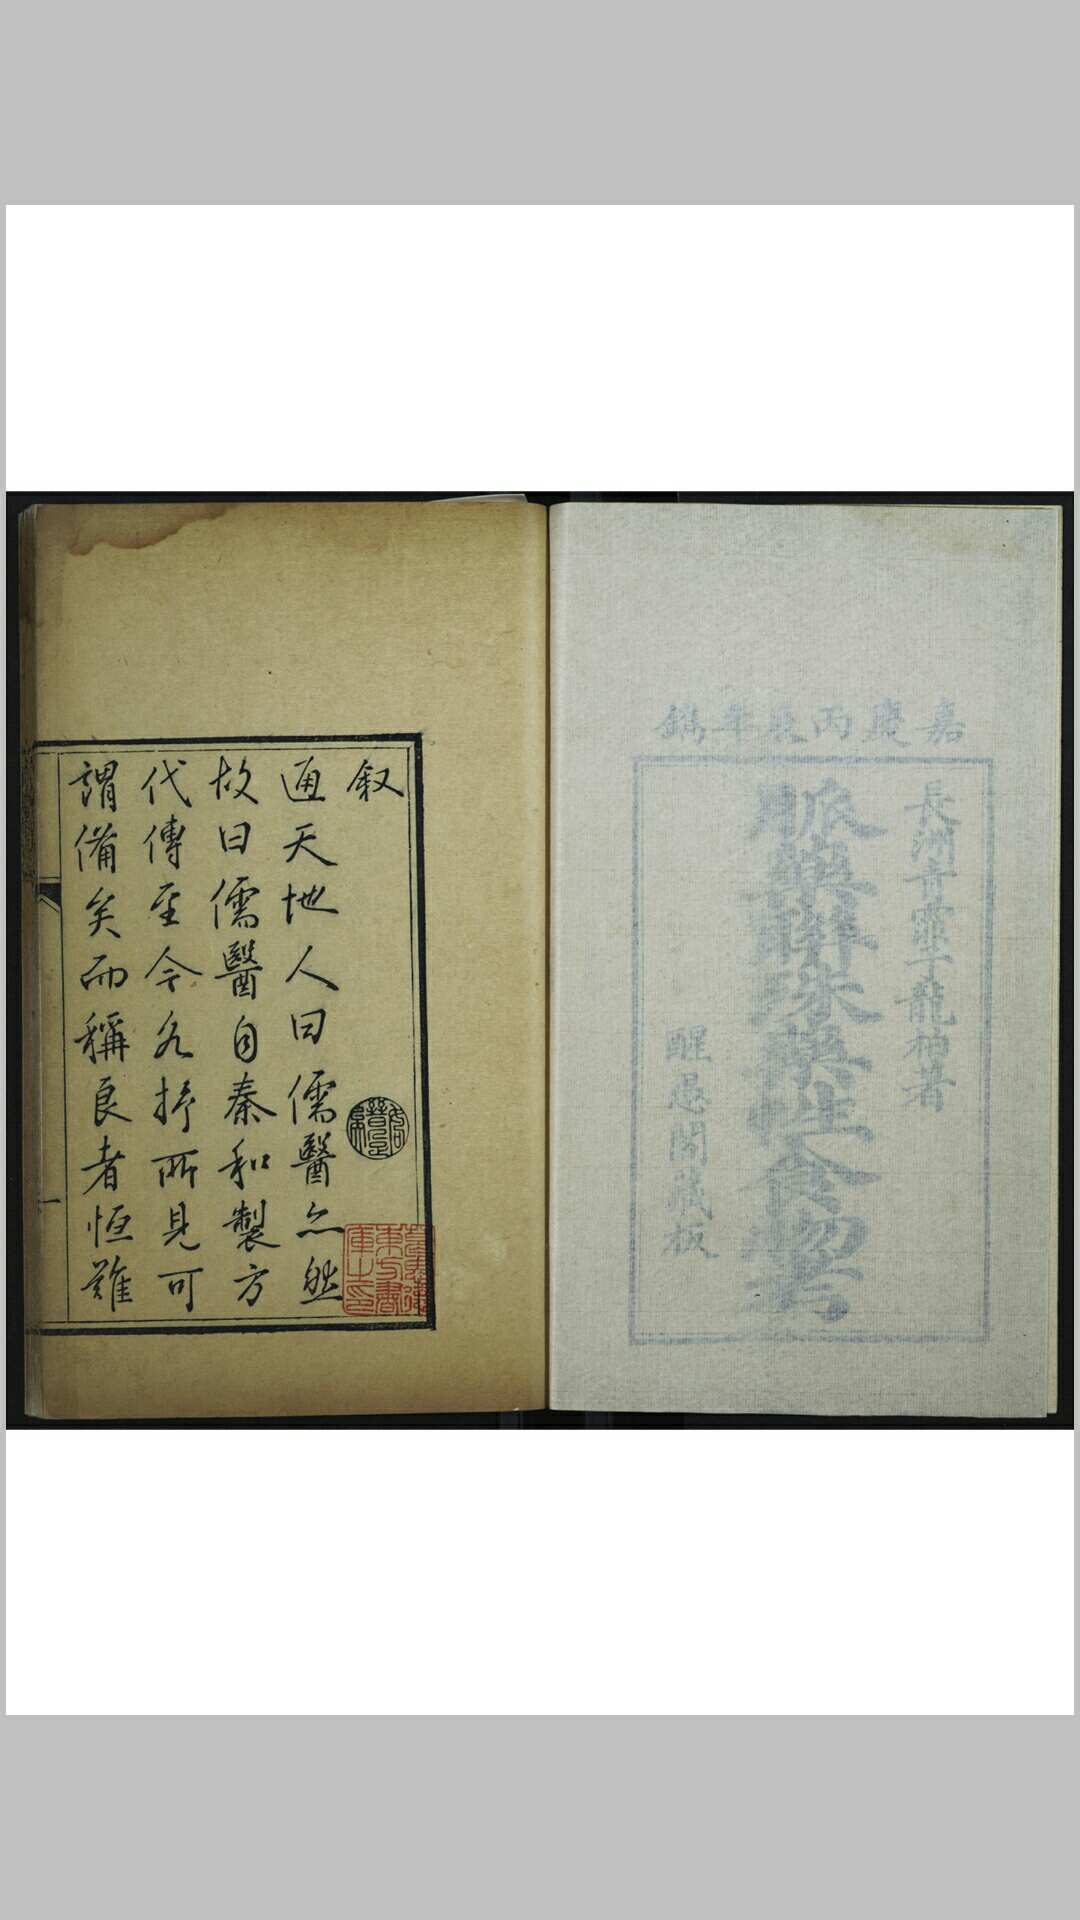 嘉慶丙辰年鐫
長洲青霏子龍柏著
脈藥聯珠藥性食物考
醒愚閣藏板
叙
通天地人曰儒醫亦然
故曰儒醫自秦和製方
代傳至今各抒所見可
謂備矣而稱良者恒難
一